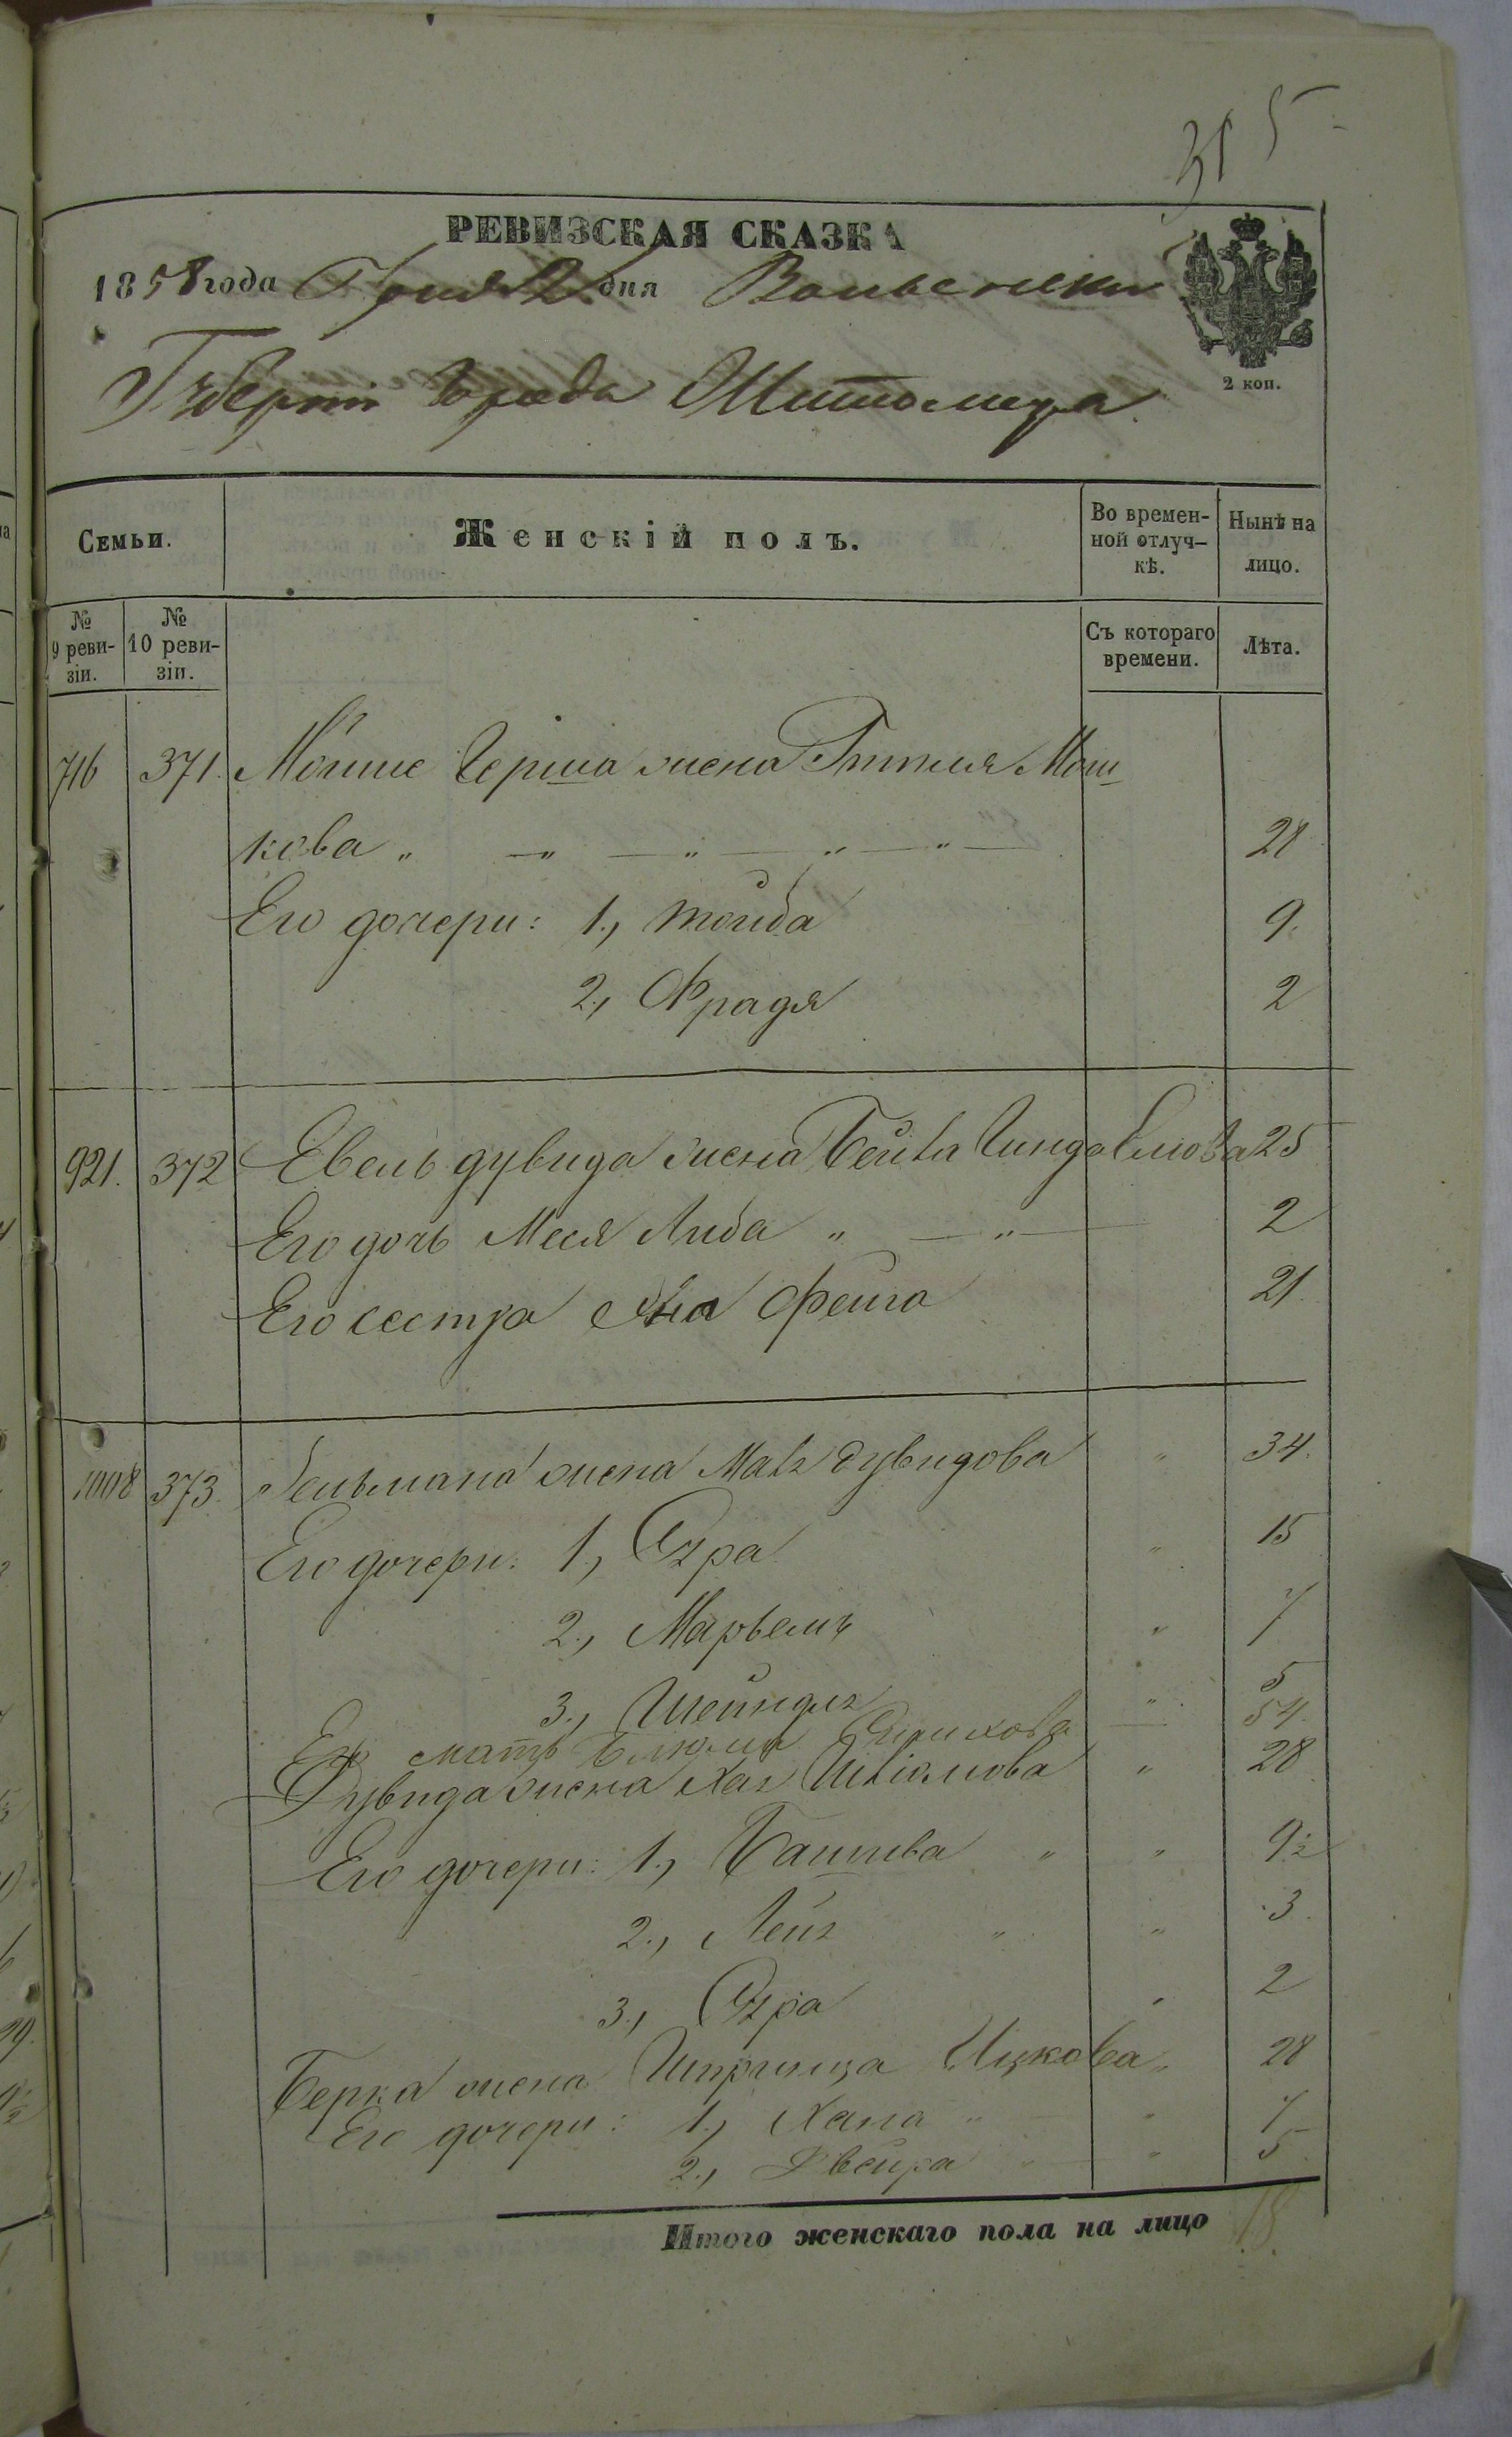 315
РЕВИЗСКАЯ СКАЗКА
1858 года Іюня 2 дня Волынской
Губерніи Города Житомира
2 коп.
Семьи.
Женскій полъ.
Во времен-
ной отлуч-
кѣ.
Нынѣ на
лицо.
№
9 реви-
зіи.
№
10 реви-
зіи.
Съ котораго
времени.
Лѣта.
716 371. Мошко Герша жена Этталя Мош
кова „ — „ — „ — „ — „ — 28
Его дочери: 1., Тойба 9.
2., Фрадя 2
921. 372 Евель Дувида жена Бейла 25
Его дочь Меся Либа „ — „ — 2
Его сестра Фейга 21.
1008 373. жена Дувидова „ 34.
Его дочери: 1., „ 15
2., „ 7
3., Шейндля „ 5
Его мать Блюма — 54.
Дувида жена Хая „ 28
Его дочери: 1., Башива „ „ 9½
2., Лея „ „ 3.
3., „ 2
Берка жена Шпринца Ицкова „ 28
Его дочери: 1., Хана „ „ 7
2., Двейра „ „ 5
Итого женскаго пола на лицо 18